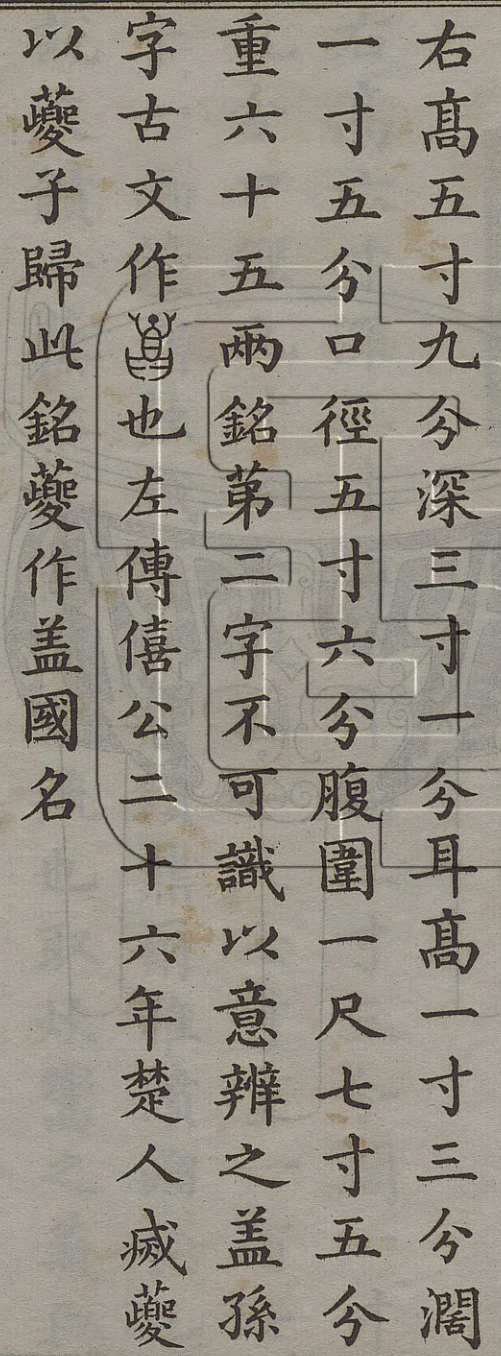 右高五寸九分深三寸一分耳高一寸三分濶
一寸五分口徑五寸六分腹圍一尺七寸五分
重六十五兩銘第二字不可識以意辨之盖孫
字古文作也左傳僖公二十六年楚人滅夔
以夔子歸此銘夔作盖國名